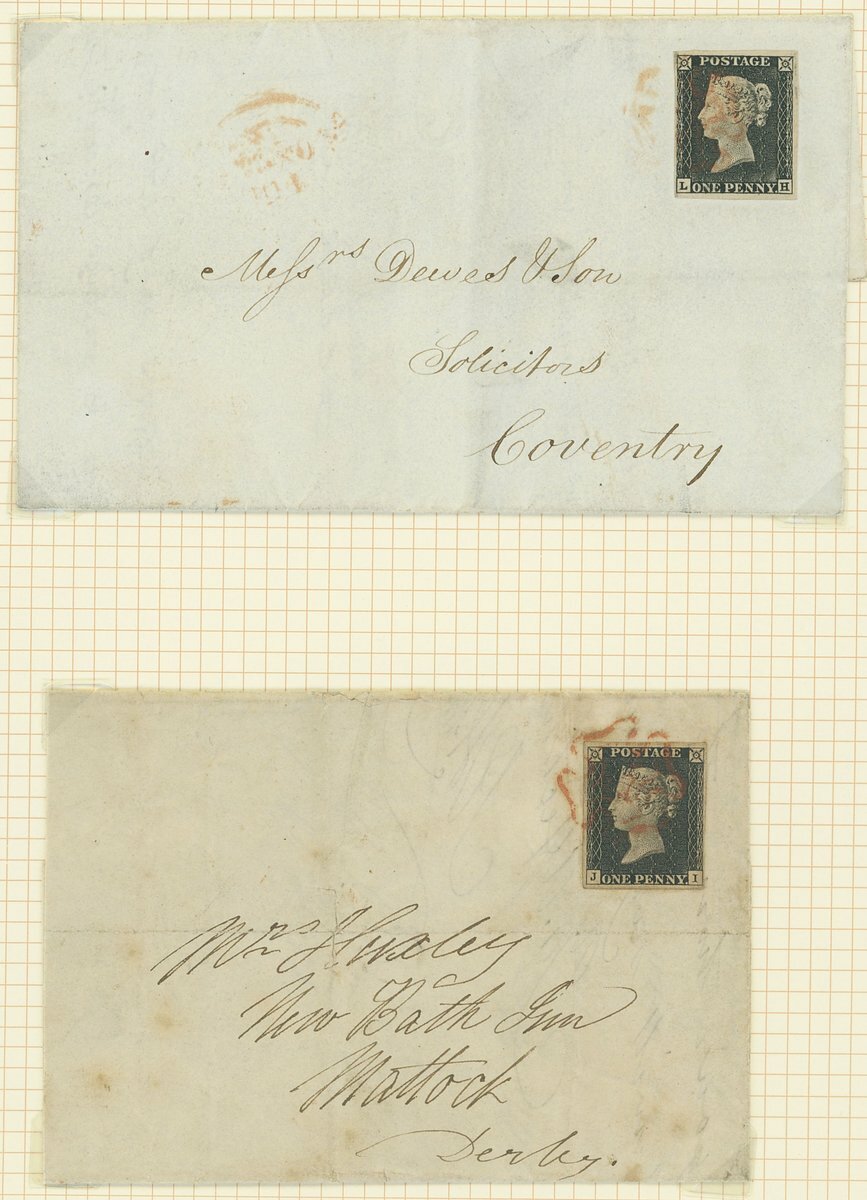 POSTAGE
L ONE PENNY H
Messrs Dewes & Son
Solicitors
Coventry
POSTAGE
J ONE PENNY I
Mrs Huxley
New Bath Inn
Mattock
Derby.